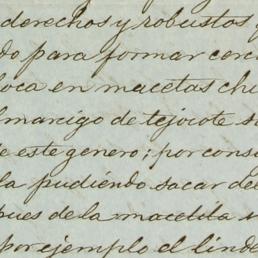 derechos y robustos
do para formar cerc
loca en macetas chi
almarcigo de tejocote s
e este genero; por cons
la pudiendo sacar del
pues de la macetita
por ejemplo el linde